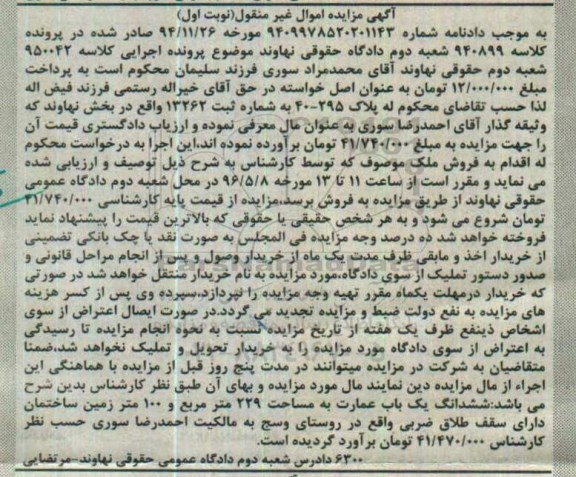 آگهی مزایده اموال غیر منقول(نوبت اول)
به موجب دادنامه شماره ۹۴۰۹۹۷۸۵۲۰۲۰۱۱۴۳ مورخه ۹۴/۱۱/۲۶ صادر شده در پرونده
کلاسه ۹۴۰۸۹۹ شعبه دوم دادگاه حقوقی نهاوند موضوع پرونده اجرایی کلاسه ۹۵۰۰۴۲
شعبه دوم حقوقی نهاوند آقای محمدمراد سوری فرزند سلیمان محکوم است به پرداخت
مبلغ ۱۲/۰۰۰/۰۰۰ تومان به عنوان اصل خواسته در حق آقای خیراله رستمی فرزند فیض اله
لذا حسب تقاضای محکوم له پلاک ۲۹۵-۴۰ به شماره ثبت ۱۳۲۶۲ واقع در بخش نهاوند که
وثیقه گذار آقای احمدرضا سوری به عنوان مال معرفی نموده و ارزیاب دادگستری قیمت آن
را جهت مزایده به مبلغ ۴۱/۷۴۰/۰۰۰ تومان برآورده نموده اند،این اجرا به درخواست محکوم
له اقدام به فروش ملک موصوف که توسط کارشناس به شرح ذیل توصیف و ارزیابی شده
می نماید و مقرر است از ساعت ۱۱ تا ۱۳ مورخه ۹۶/۵/۸ در محل شعبه دوم دادگاه عمومی
حقوقی نهاوند از طریق مزایده به فروش برسد،مزایده از قیمت پایه کارشناسی ۴۱/۷۴۰/۰۰۰
تومان شروع می شود و به هر شخص حقیقی یا حقوقی که بالاترین قیمت را پیشنهاد نماید
فروخته خواهد شد ده درصد وجه مزایده فی المجلس به صورت نقد یا چک بانکی تضمینی
از خریدار اخذ و مابقی ظرف مدت یک ماه از خریدار وصول و پس از انجام مراحل قانونی و
صدور دستور تملیک از سوی دادگاه،مورد مزایده به نام خریدار منتقل خواهد شد در صورتی
که خریدار درمهلت یکماه مقرر تهیه وجه مزایده را نپردازد،سپرده وی پس از کسر هزینه
های مزایده به نفع دولت ضبط و مزایده تجدید می گردد.در صورت ایصال اعتراض از سوی
اشخاص ذینفع ظرف یک هفته از تاریخ مزایده نسبت به نحوه انجام مزایده تا رسیدگی
به اعتراض از سوی دادگاه مورد مزایده را به خریدار تحویل و تملیک نخواهد شد،ضمنا
متقاضیان به شرکت در مزایده میتوانند در مدت پنج روز قبل از مزایده با هماهنگی این
اجراء از مال مزایده دین نمایند مال مورد مزایده و بهای آن طبق نظر کارشناس بدین شرح
می باشد:ششدانگ یک باب عمارت به مساحت ۲۲۹ متر مربع و ۱۰۰ متر زمین ساختمان
دارای سقف طلاق ضربی واقع در روستای وسج به مالکیت احمدرضا سوری حسب نظر
کارشناس ۴۱/۴۷۰/۰۰۰ تومان برآورد گردیده است.
۶۳۰۰ دادرس شعبه دوم دادگاه عمومی حقوقی نهاوند-مرتضایی